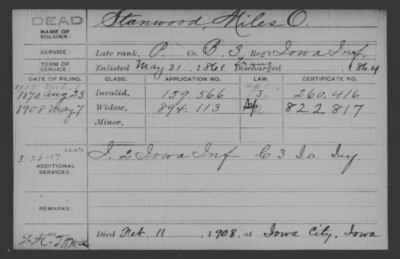 DEAD
NAME OF SOLDIER: Stanwood, Miles O.
SERVICE: Late rank, P. Co. B. 3, Reg't Iowa Inf.
TERM OF SERVICE: Enlisted May 31, 1861 Discharged 1864
DATE OF FILING. CLASS. APPLICATION NO. LAW. CERTIFICATE NO.
1870 Aug 23 Invalid, 159.566 260.416
1908 May 7 Widow, 894.113 822817
Minor,
ADDITIONAL SERVICES: I. 2 Iowa Inf C 3 Ia Inf
REMARKS:
Died Feb 11, 1908, at Iowa City, Iowa